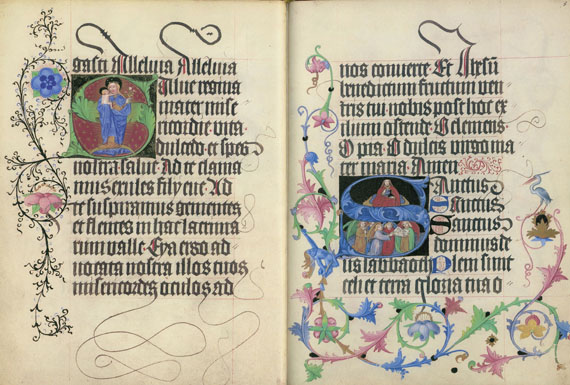 gasti Alleluia Alleluia
Salue regina
mater mise
ricordie vita
dulcedo et spes
nostra salue Ad te clama
mus exules filÿ eue Ad
te suspiramus gementes
et flentes in hac lacrima
rum valle Eya ergo ad
uocata nostra illos tuos
misericordes oculos ad
nos conuerte Et Ihesum
benedictum fructum ven
tris tui nobis post hoc ex
ilium ostende O clemens
O pia O dulcis virgo ma
ter maria Amen
Sanctus
Sanctus
Sanctus
dominus de
us sabbaoth Pleni sunt
celi et terra gloria tua o